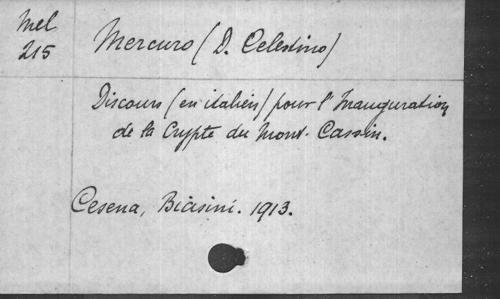 Mel
215
Mercuro (D. Celestino)
Discours (en italien) pour l'Inauguration
de la Crypte du Mont-Cassin.
Cesena, Biasini. 1913.